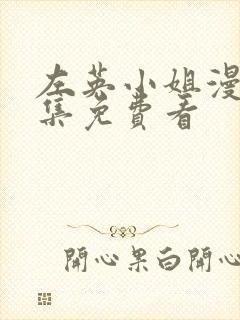 左英小姐漫
集免費看
開心果白開心